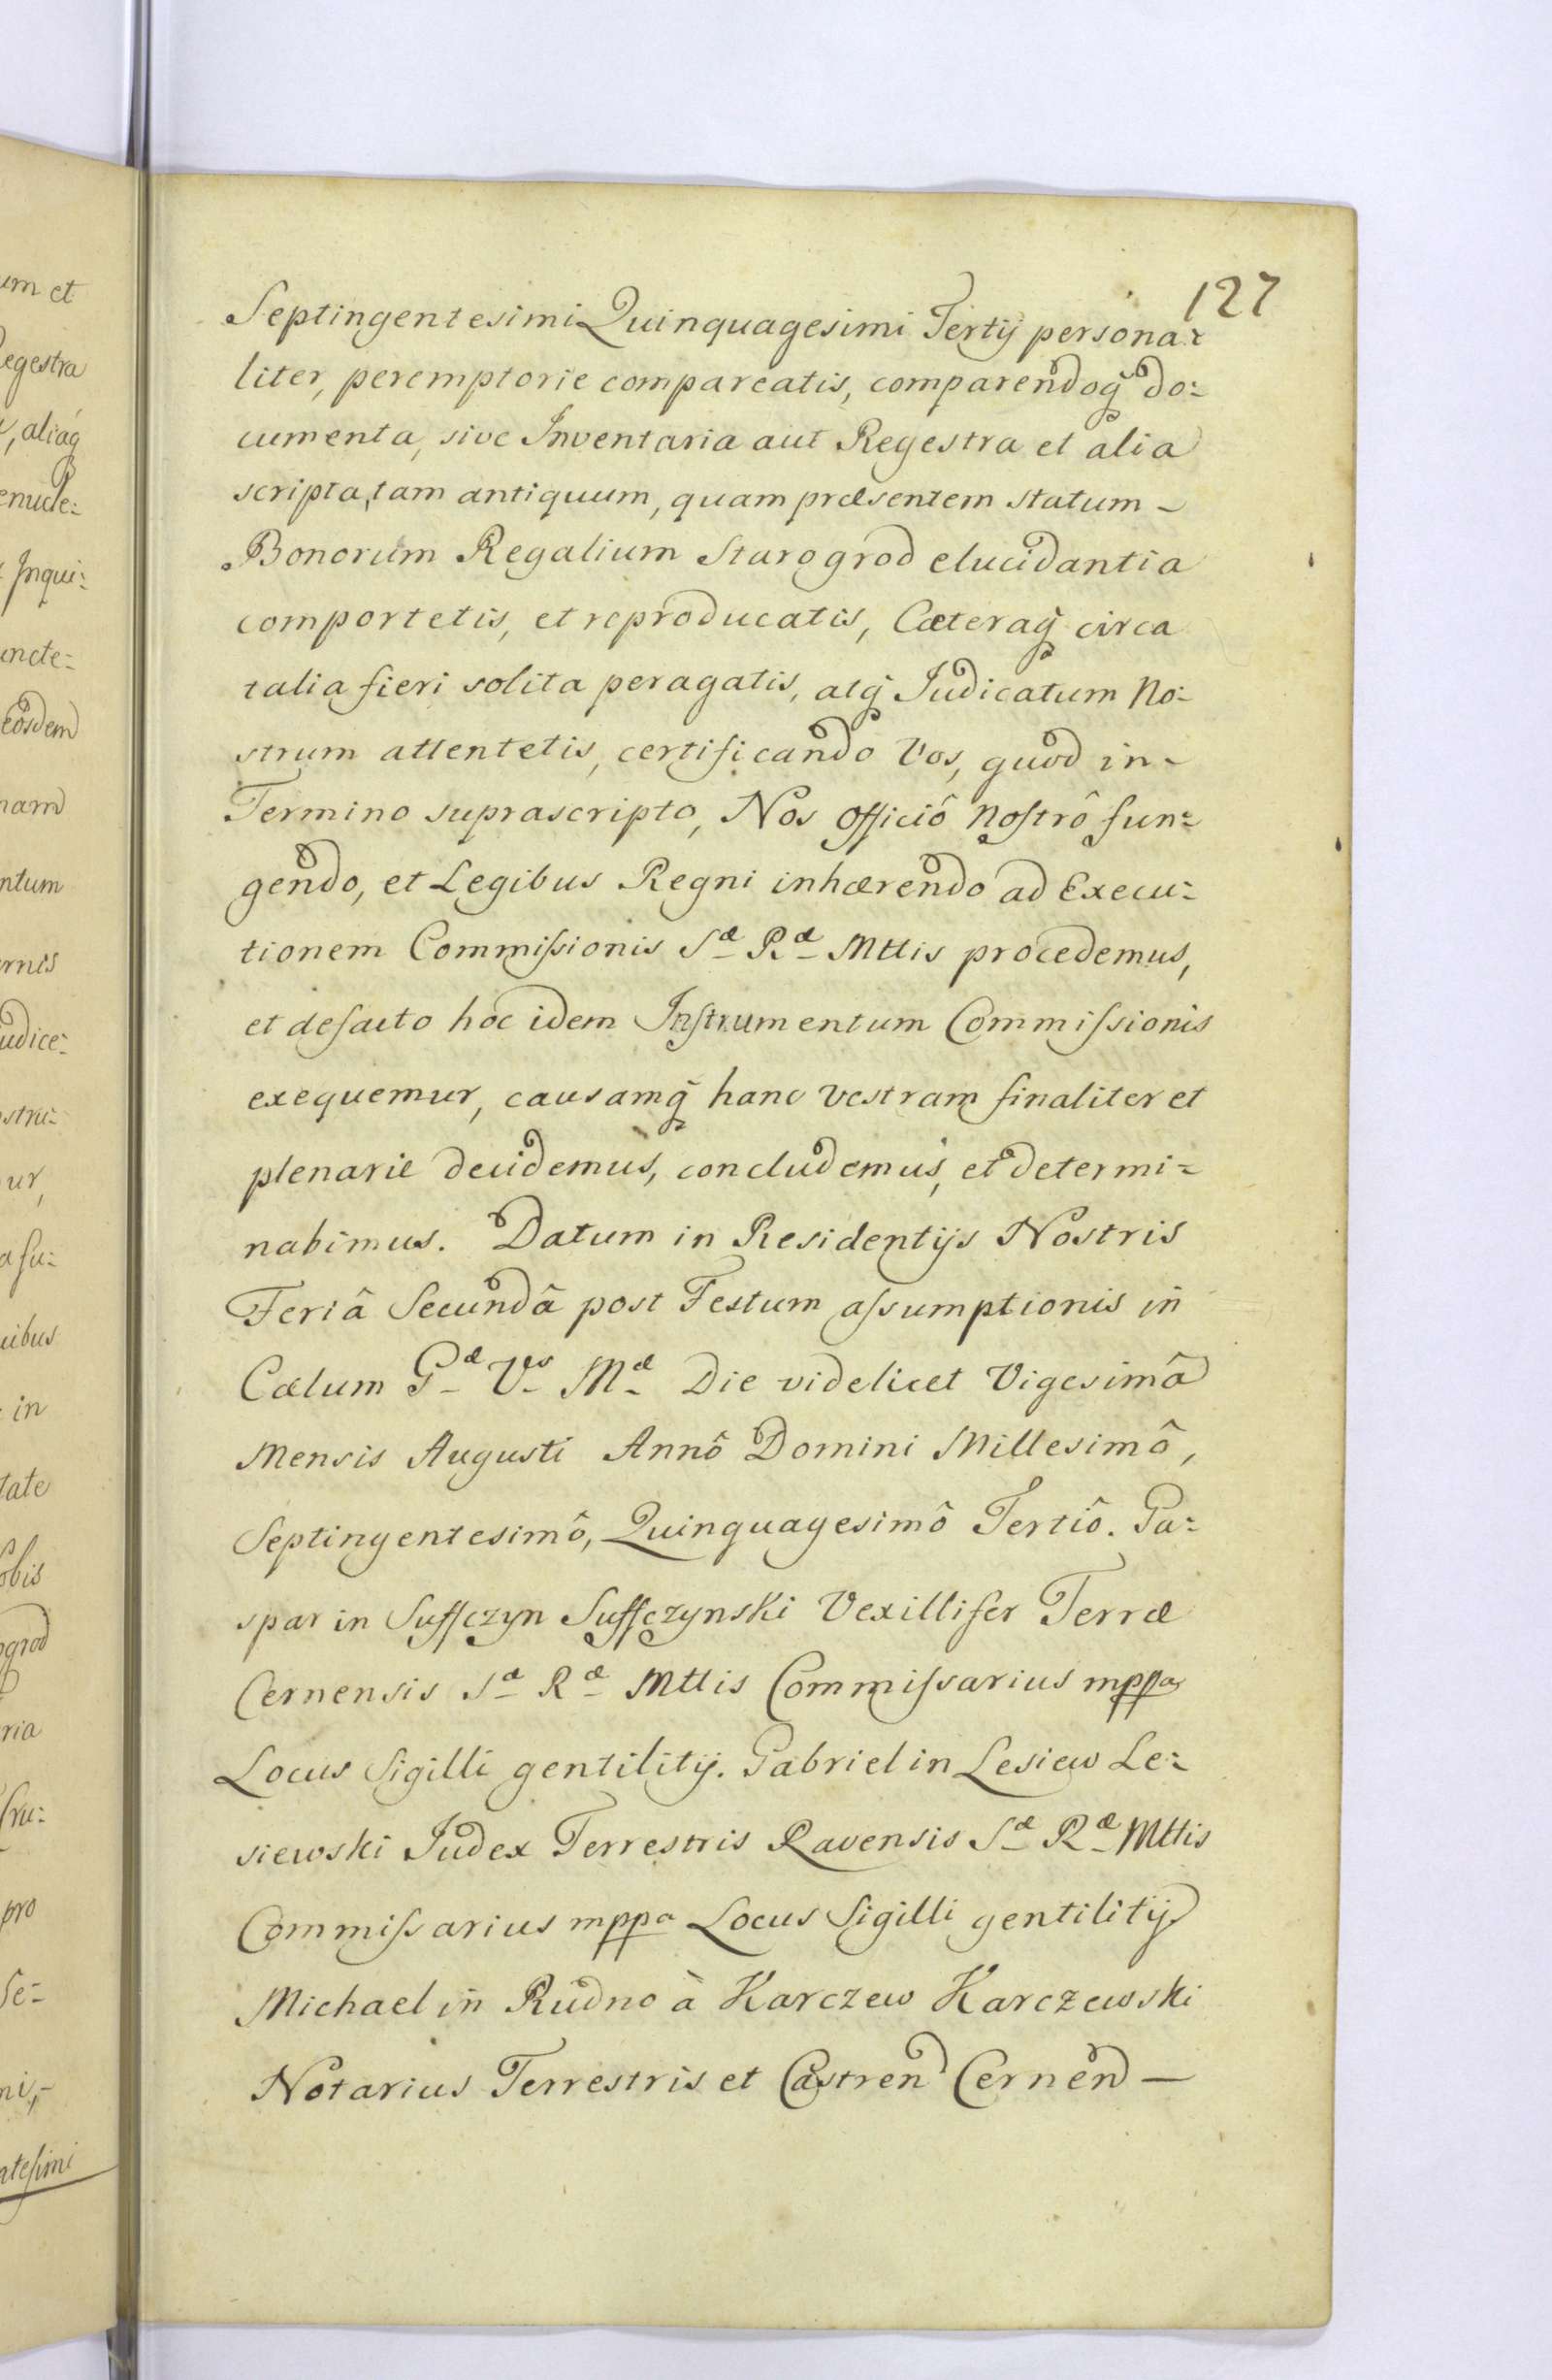 127
Septingentesimi Quinquagesimi Tertij persona-
liter, peremptorie compareatis, comparendoq̃ do-
cumenta, sive Inventaria aut Regestra et alia
scripta, tam antiquum, quam præsentem statum -
Bonorum Regalium Starogrod elucidantia
comportetis, et reproducatis, Cæteraq̃ circa
talia fieri solita peragatis, atq̃ Judicatum No-
strum attentetis, certificando Vos, quod in-
Termino suprascripto, Nos Officiô Nostrô fun-
gendo, et Legibus Regni inhærendo ad Execu-
tionem Commissionis Sæ Ræ Mttis procedemus,
et defacto hoc idem Instrumentum Commissionis
exequemur, causamq̃ hanc vestram finaliter et
plenarie decidemus, concludemus, et determi-
nabimus. Datum in Residentijs Nostris
Feriâ Secundâ post Festum assumptionis in
Cælum Gæ Vs Mæ Die videlicet Vigesimâ
Mensis Augusti Annô Domini Millesimô,
Septingentesimô, Quinquagesimô Tertiô. Ga-
spar in Suffczyn Suffczynski Vexillifer Terræ
Cernensis Sæ Ræ Mttis Commissarius mppa
Locus Sigilli gentilitij. Gabriel in Lesiew Le-
siewski Judex Terrestris Ravensis Sæ Ræ Mttis
Commissarius mppa Locus Sigilli gentilitij
Michael in Rudno à Karczew Karczewski
Notarius Terrestris et Castren Cernen —
um et
egestra
, aliaq̃
enucle-
Inqui-
uncte-
eosdem
nam
ntum
rnis
udice-
stru-
ur,
a su-
uibus
in
tate
obis
ogrod
ria
pro
se-
ni,-
ntesimi